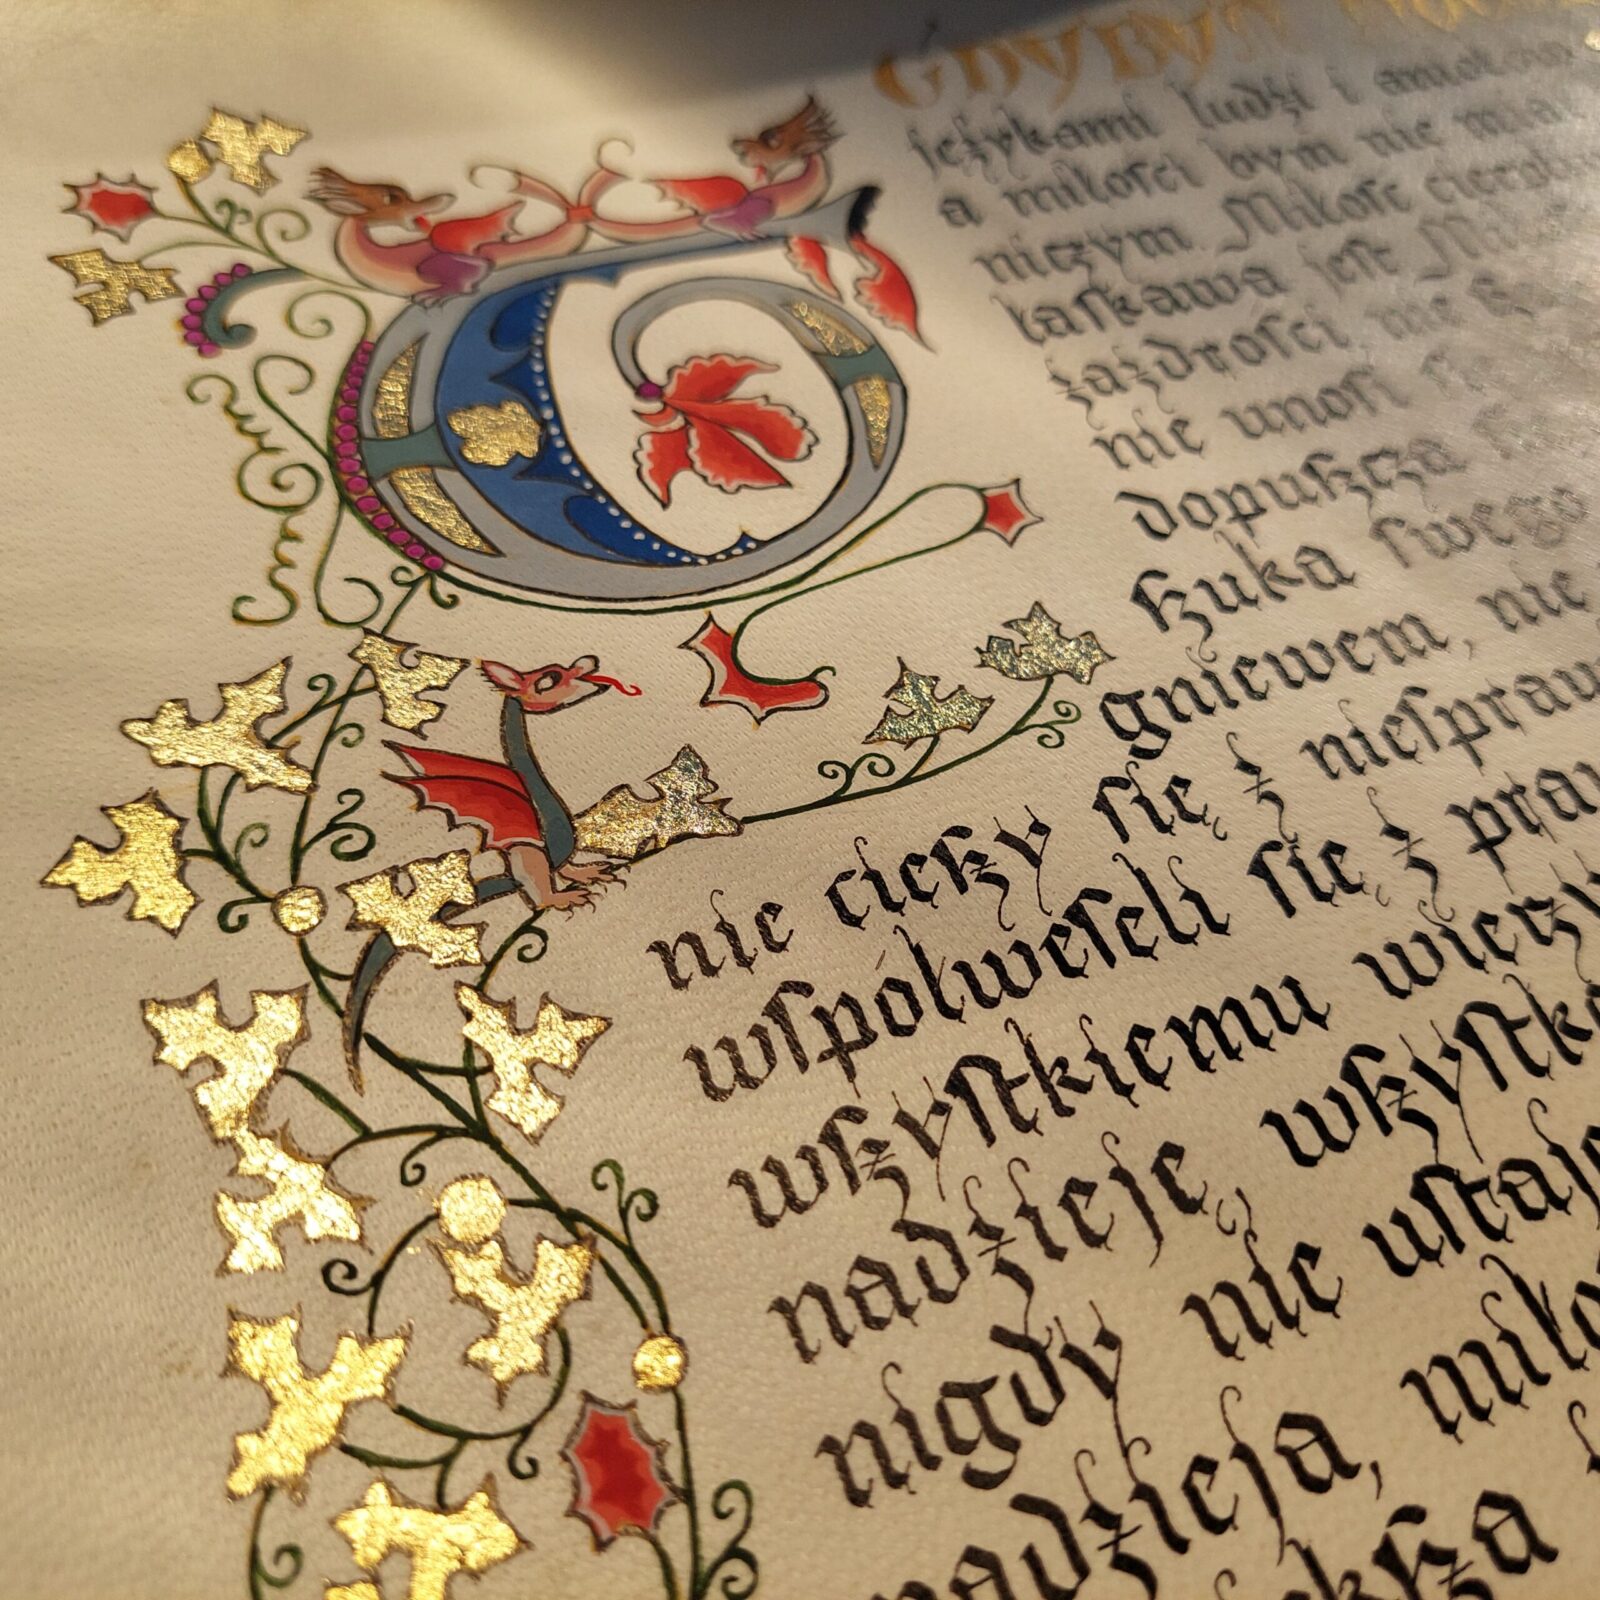 GDYBYM
językami ludzi i aniołów
a miłości bym nie miał
niczym. Miłość
łaskawa jest.
zazdrości, nie
nie unosi się
dopuszcza
szuka swego
gniewem, nie
nie cieszy się z niespraw
współweseli się z praw
wszystkiemu wierzy
nadzieję, wszystko
nigdy nie ustaje
nadzieja, miło